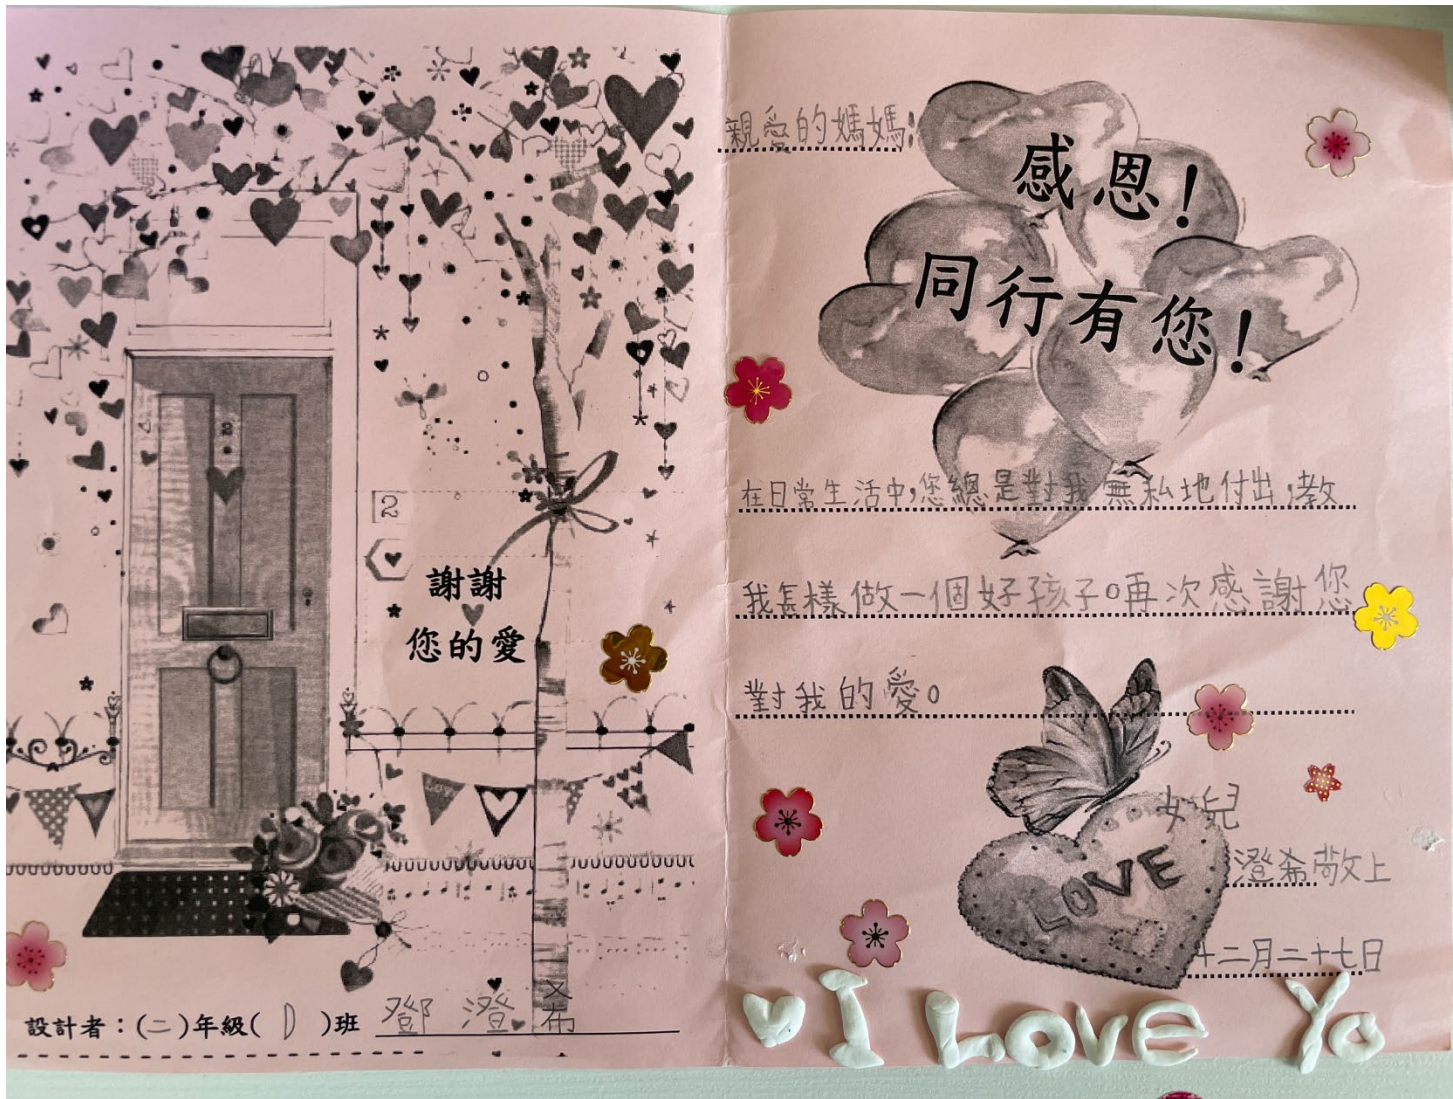 2
2
謝謝
您的愛
Love
設計者：(二)年級( D )班 鄧澄希
親愛的媽媽:
感恩！
同行有您！
在日常生活中,您總是對我無私地付出,教
我怎樣做一個好孩子。再次感謝您
對我的愛。
LOVE
女兒
澄希敬上
十二月二十七日
I Love Yo